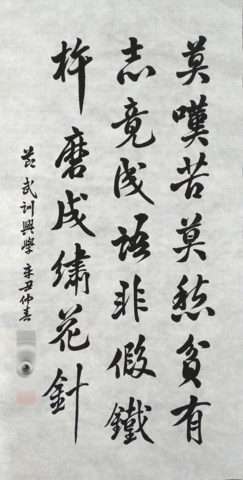 莫嘆苦莫愁貧有
志竟成語非假鐵
杵磨成繡花針
武訓興學 辛丑仲春